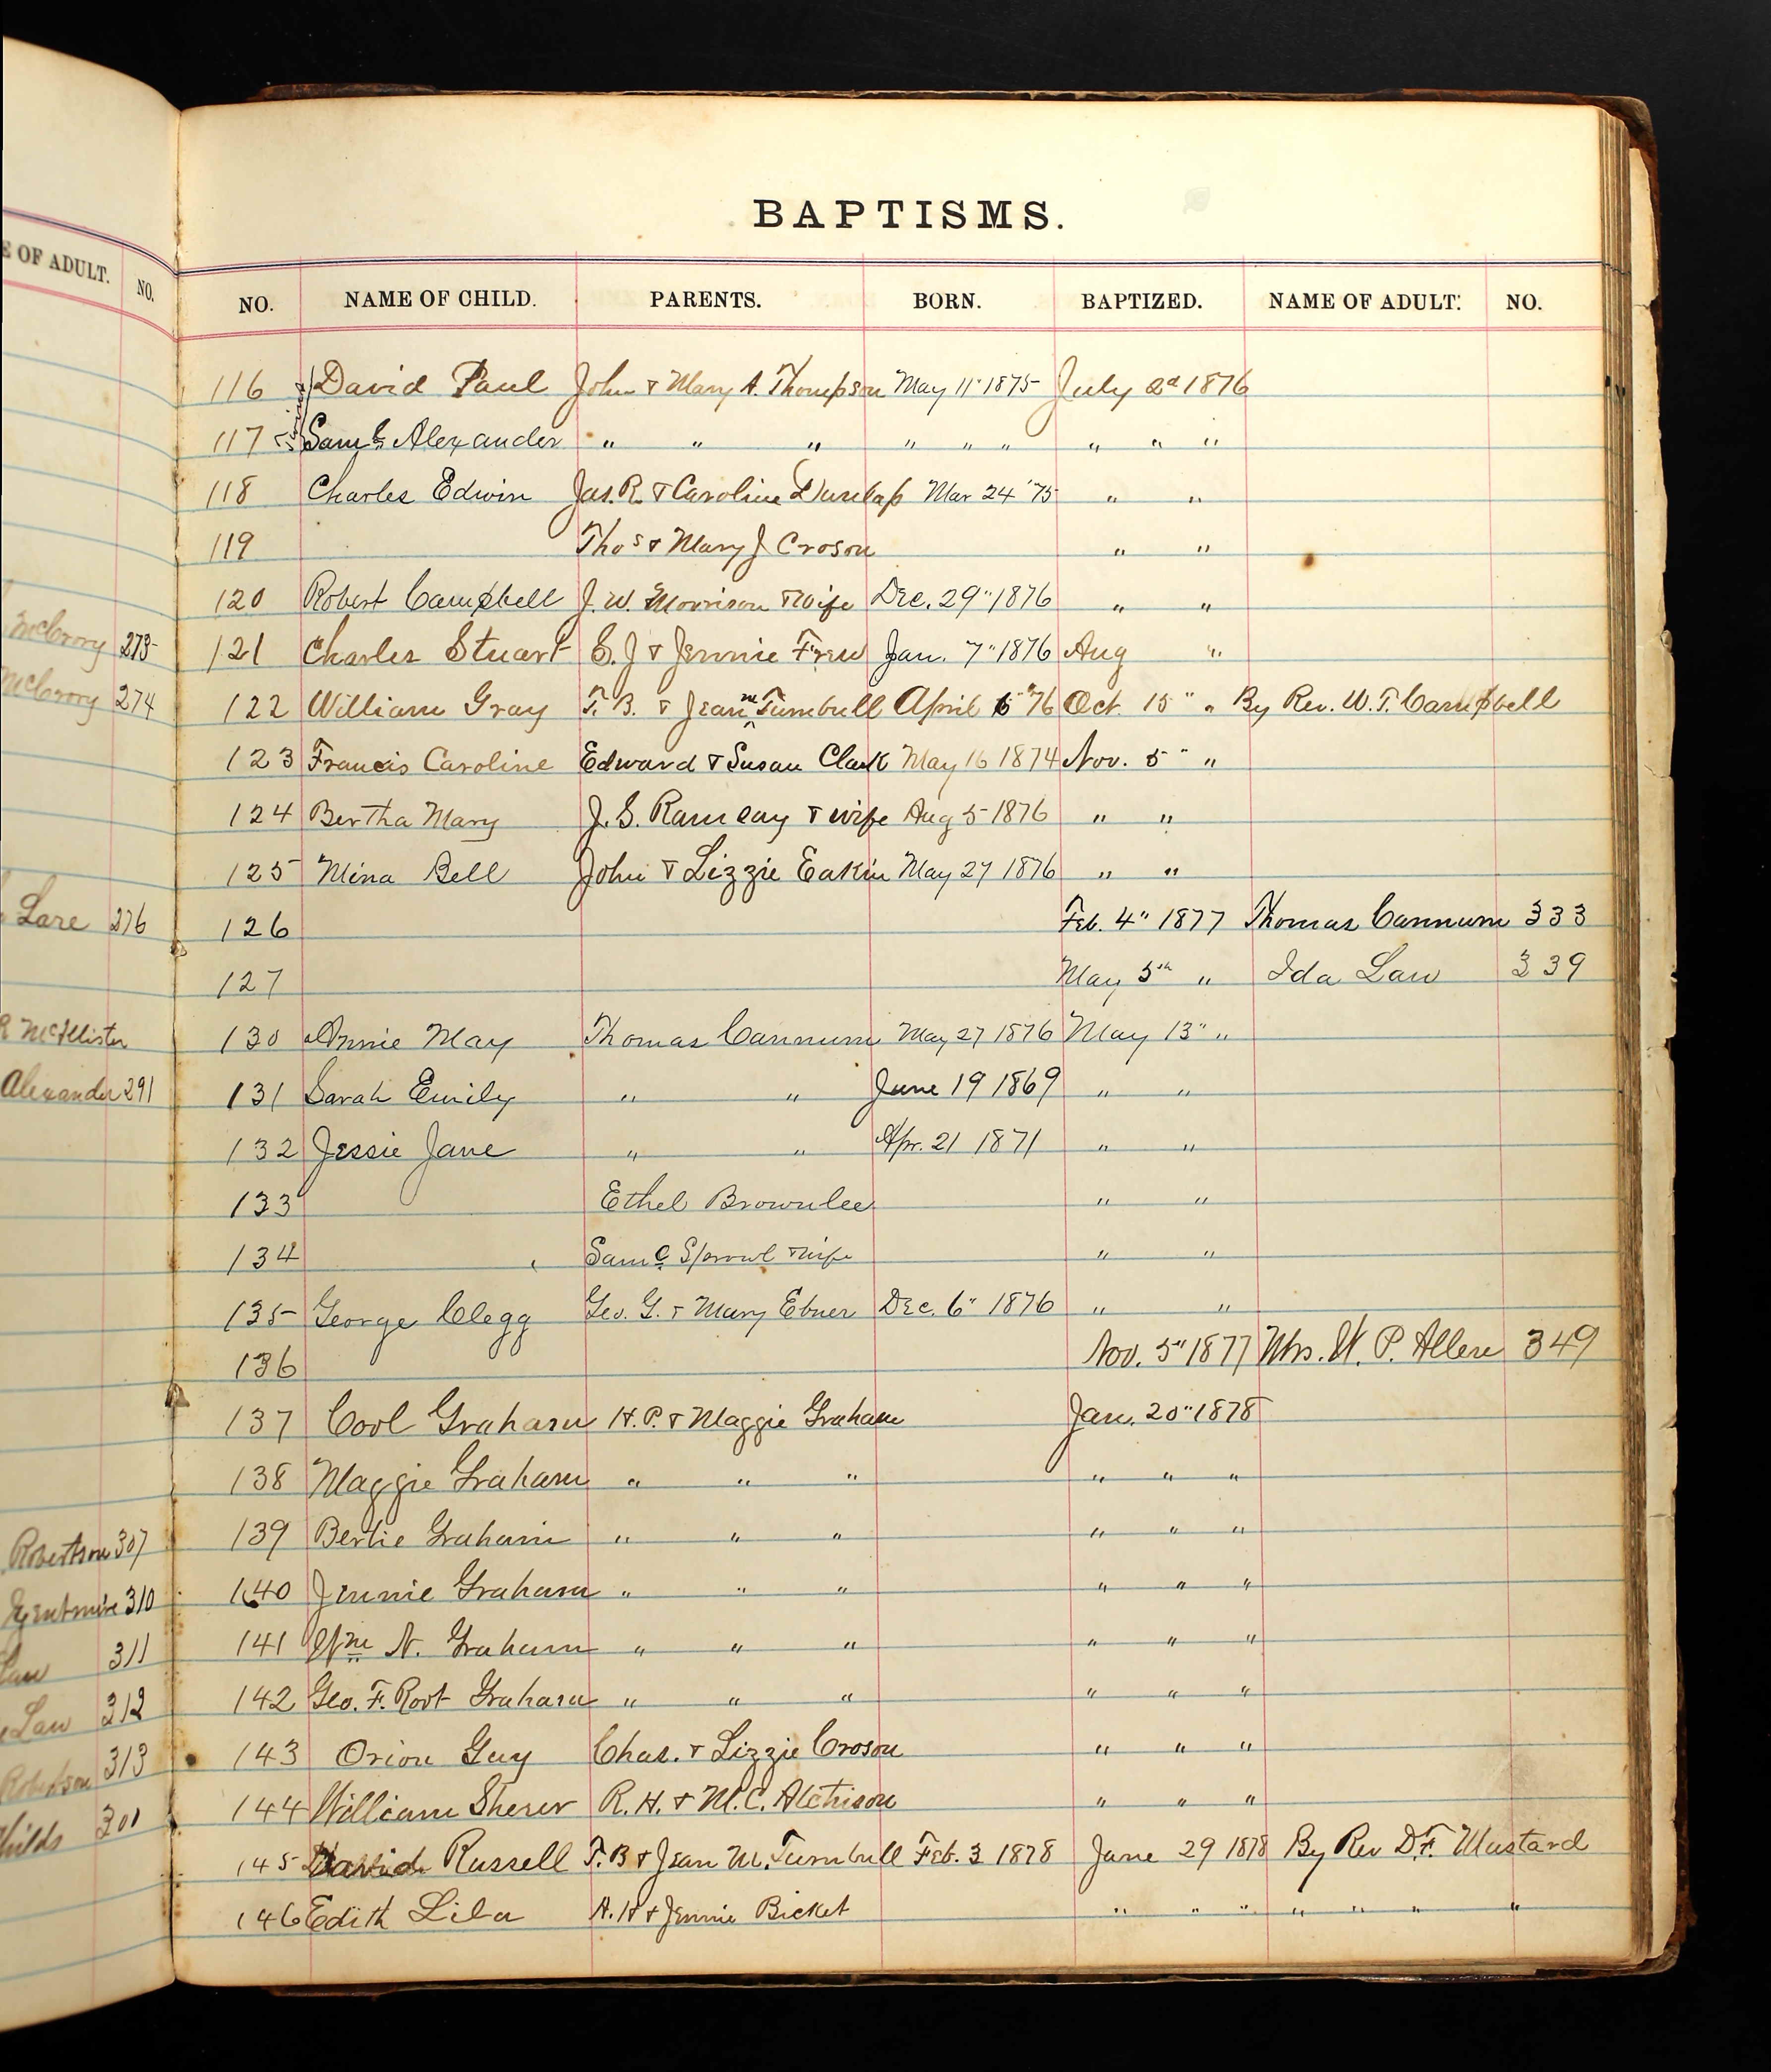 BAPTISMS.
E OF ADULT. NO.
McCrory 273
McCrory 274
Lare 276
McAllister
Alexander 291
Robertson 307
310
Law 311
Law 312
Robertson 313
301
NO. NAME OF CHILD. PARENTS. BORN. BAPTIZED. NAME OF ADULT. NO.
116 David Paul John & Mary A. Thompson May 11" 1875 July 2d 1876
117 Saml Alexander " " " " " " " " "
118 Charles Edwin Jas. R. & Caroline Dunlap Mar 24 '75 " "
119 Thos & Mary J Croson " "
120 Robert Campbell J. W. Morrison & Wife Dec. 29" 1876 " "
121 Charles Stuart E. J & Jennie Frew Jan. 7" 1876 Aug "
122 William Gray T. B. & Jean M Turnbull April 6" "76 Oct. 15" " By Rev. W. T. Campbell
123 Francis Caroline Edward & Susan Clark May 16 1874 Nov. 5" "
124 Bertha Mary J. S. Ramsay & wife Aug 5 1876 " "
125 Mina Bell John & Lizzie Eakin May 27 1876 " "
126 Feb. 4" 1877 Thomas Cannum 333
127 May 5th " Ida Law 339
130 Annie May Thomas Cannum May 27 1876 May 13" "
131 Sarah Emily " " June 19 1869 " "
132 Jessie Jane " " Apr. 21 1871 " "
133 Ethel Brownlee " "
134 Saml Sprowl & wife " "
135 George Clegg Geo. G. & Mary Ebner Dec. 6" 1876 " "
136 Nov. 5" 1877 Mrs. W. P. Allen 349
137 Cool Graham H. P. & Maggie Graham Jan. 20" 1878
138 Maggie Graham " " " " " "
139 Bertie Graham " " " " " "
140 Jennie Graham " " " " " "
141 Wm N. Graham " " " " " "
142 Geo. F. Root Graham " " " " " "
143 Orion Guy Chas. & Lizzie Croson " " "
144 William Sherer R. H. & M. C. Atchison " " "
145 David Russell T. B & Jean M. Turnbull Feb. 3 1878 June 29 1878 By Rev D. F. Mustard
146 Edith Lila A. H & Jennie Bicket " " " " " " "